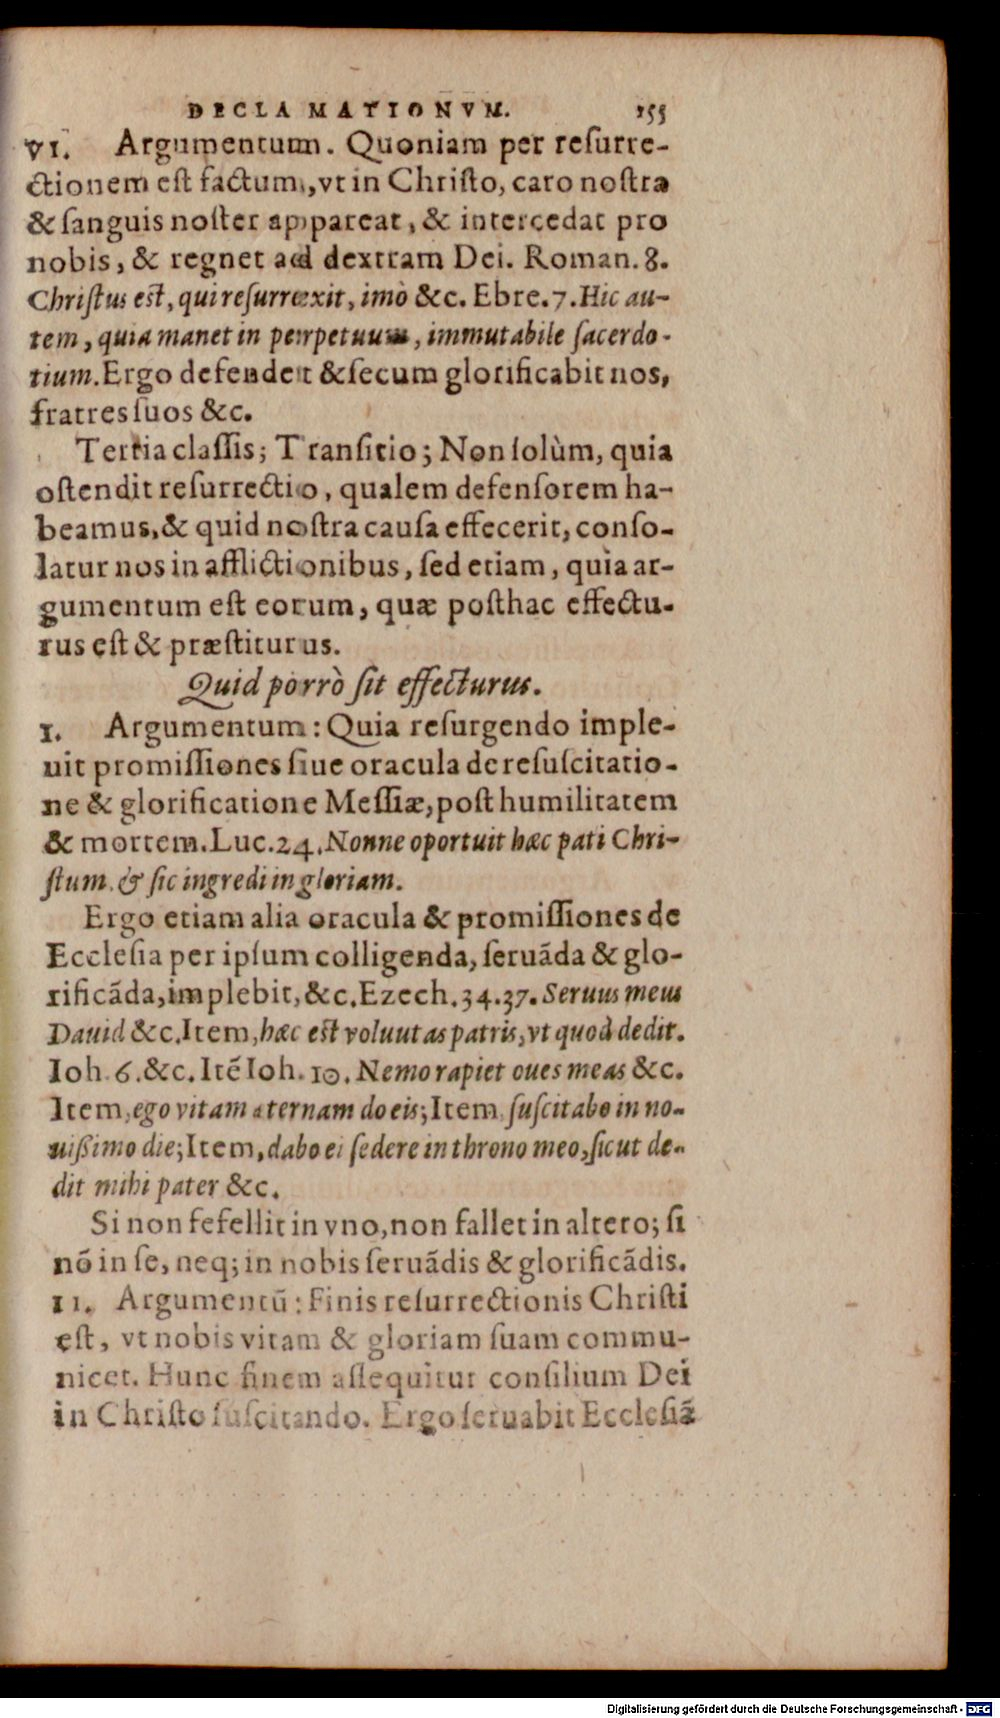 DECLAMATIONVM. 155
VI. Argumentum. Quoniam per reſurre-
ctionem eſt factum, vt in Chriſto, caro noſtra
& ſanguis noſter appareat, & intercedat pro
nobis, & regnet ad dextram Dei. Roman. 8.
Chriſtus eſt, qui reſurrexit, imò &c. Ebre. 7. Hic au-
tem, quia manet in perpetuum, immutabile ſacerdo-
tium. Ergo defendet & ſecum glorificabit nos,
fratres ſuos &c.
Tertia claſſis; Tranſitio; Non ſolùm, quia
oſtendit reſurrectio, qualem defenſorem ha-
beamus, & quid noſtra cauſa effecerit, conſo-
latur nos in afflictionibus, ſed etiam, quia ar-
gumentum eſt eorum, quæ poſthac effectu-
rus eſt & præſtiturus.
Quid porrò ſit effecturus.
I. Argumentum: Quia reſurgendo imple-
uit promiſſiones ſiue oracula de reſuſcitatio-
ne & glorificatione Meſſiæ, poſt humilitatem
& mortem. Luc. 24. Nonne oportuit hæc pati Chri-
ſtum, & ſic ingredi in gloriam.
Ergo etiam alia oracula & promiſſiones de
Eccleſia per ipſum colligenda, ſeruãda & glo-
rificãda, implebit, &c. Ezech. 34. 37. Seruus meus
Dauid &c. Item, hæc eſt voluutas patris, vt quod dedit.
Ioh. 6. &c. Itẽ Ioh. 10. Nemo rapiet oues meas &c.
Item, ego vitam æternam do eis; Item, ſuſcitabo in no-
uißimo die; Item, dabo ei ſedere in throno meo, ſicut de-
dit mihi pater &c.
Si non fefellit in vno, non fallet in altero; ſi
nõ in ſe, neq; in nobis ſeruãdis & glorificãdis.
II. Argumentũ: Finis reſurrectionis Chriſti
eſt, vt nobis vitam & gloriam ſuam commu-
nicet. Hunc finem aſſequitur conſilium Dei
in Chriſto ſuſcitando. Ergo ſeruabit Eccleſiã
Digitalisierung gefördert durch die Deutsche Forschungsgemeinschaft - DFG